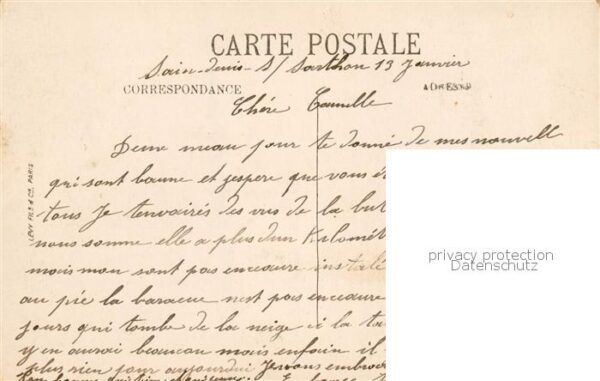 CARTE POSTALE
Sain-denis-S/ Sarthon 13 Janvier
CORRESPONDANCE
ADRESSE
Chére Camille
Deux meau pour te donné de mes nouvell
qui sont baune et jespere que vous
tous Je tenvairés des vus de la but
nous somme elle a plus dun Kilomét
mais mon sont pas encaure instalé
au pié la baracue nest pas encaure
jours qui tombe de la neige i la ta
y en aurai beaucau mais enfoin il
plus rien pour aujourdui Je vous embrace
LEVY FILS & CO, PARIS
privacy protection
Datenschutz